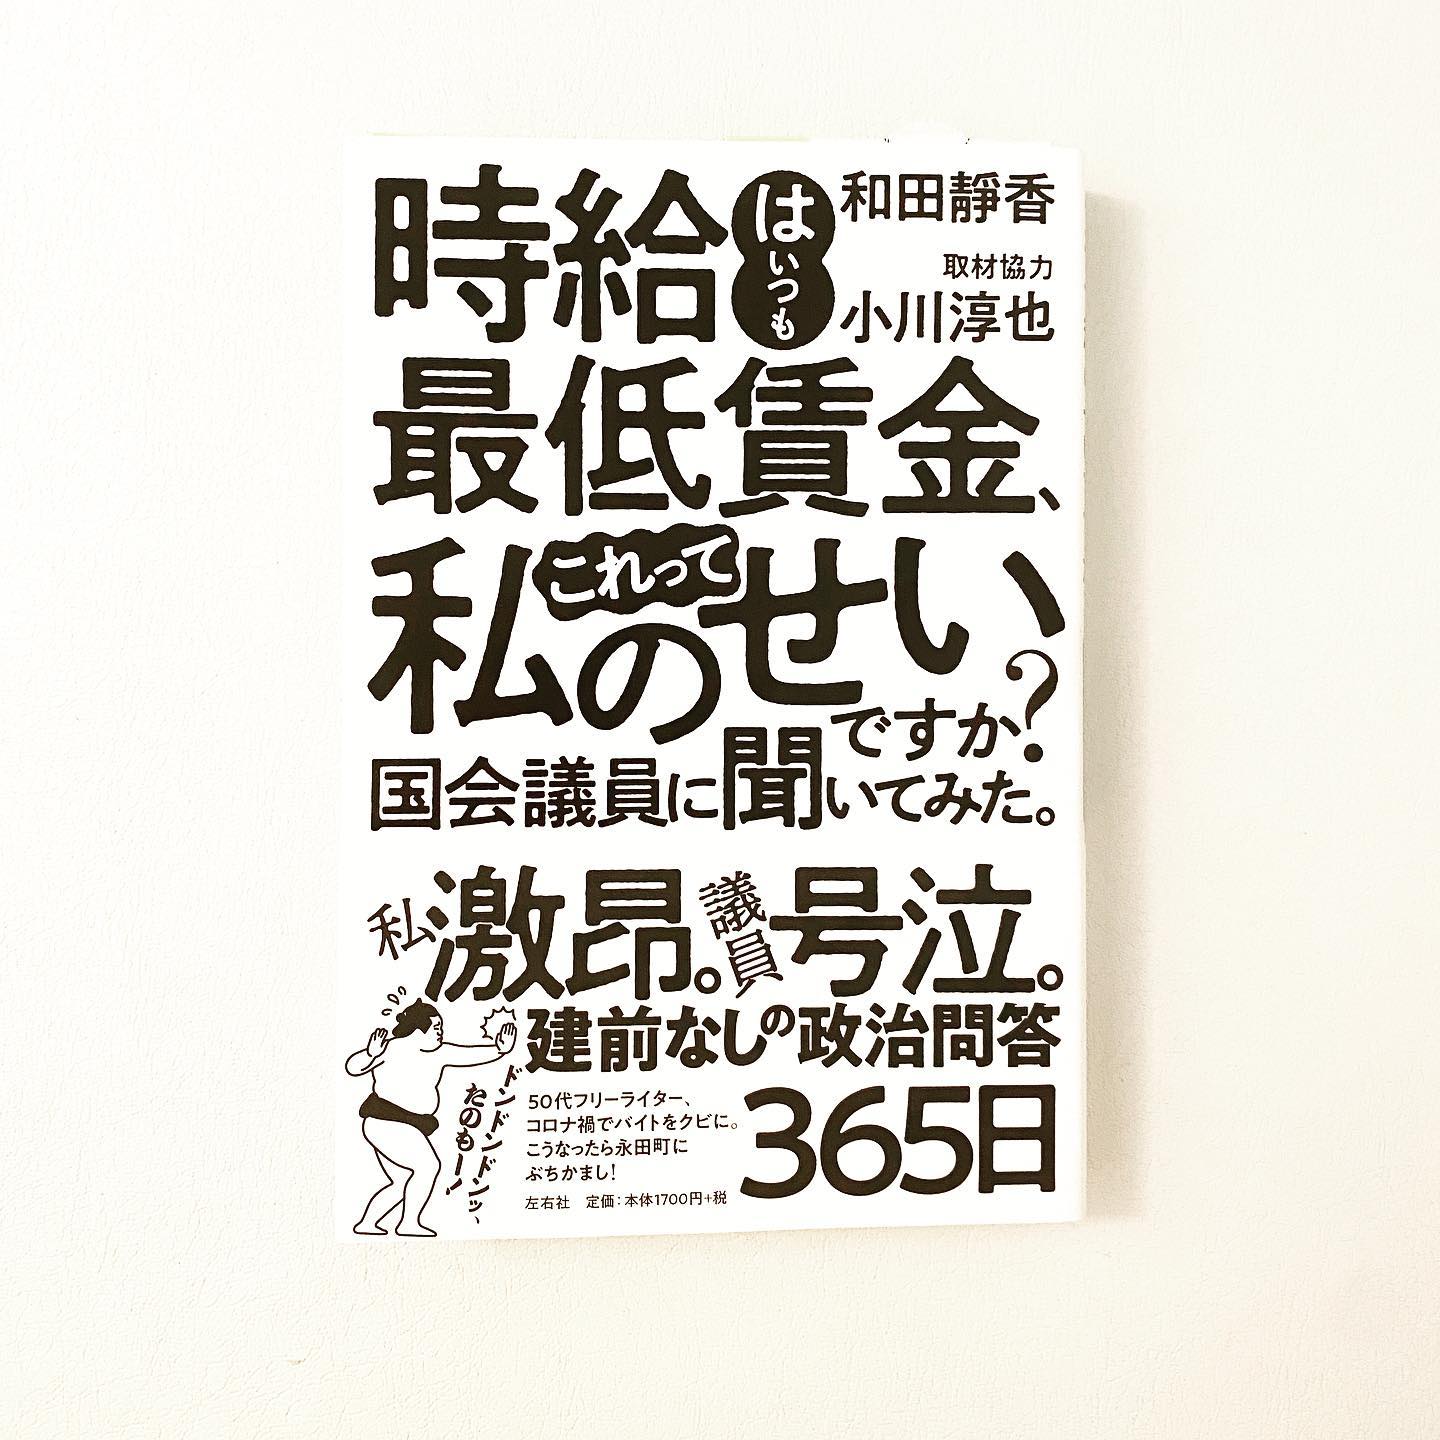 時給はいつも
和田靜香
取材協力
小川淳也
最低賃金、
これって
私のせい
ですか?
国会議員に聞いてみた。
私激昂。議員、号泣。
建前なしの政治問答
365日
ドンドンドンッ、
たのもー!
50代フリーライター、
コロナ禍でバイトをクビに。
こうなったら永田町に
ぶちかまし!
左右社 定価:本体1700円+税